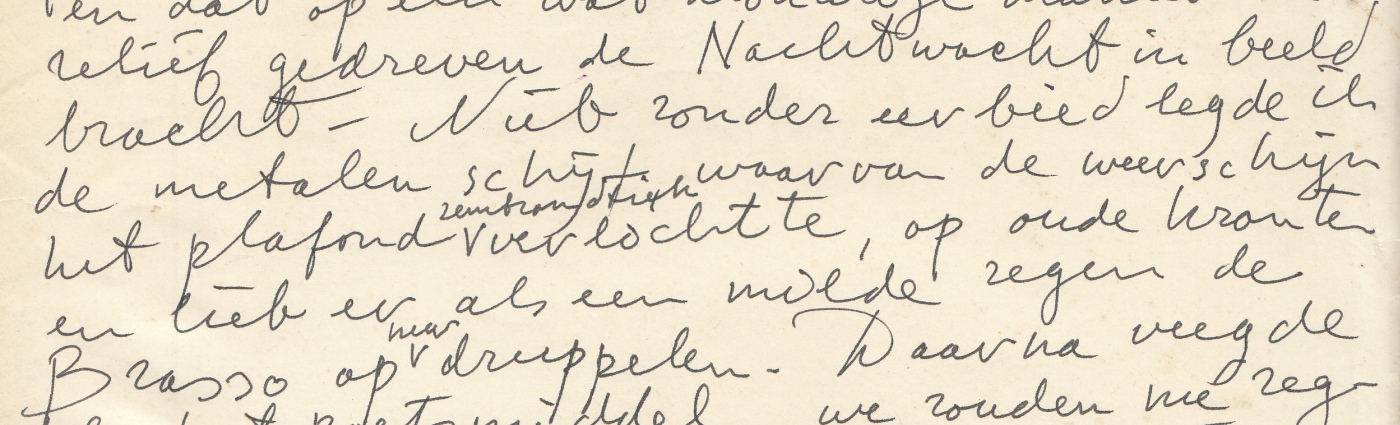 en dat op een wat
reliëf gedreven de Nachtwacht in beeld
bracht - Niet zonder eerbied legde ik
de metalen schijf, waarvan de weerschijn
het plafond rembrandtiek verlichtte, op oude kranten
en liet er als een milde regen de
Brasso op neer druppelen. Daarna veegde
poetsmiddel we zouden nu zeg-